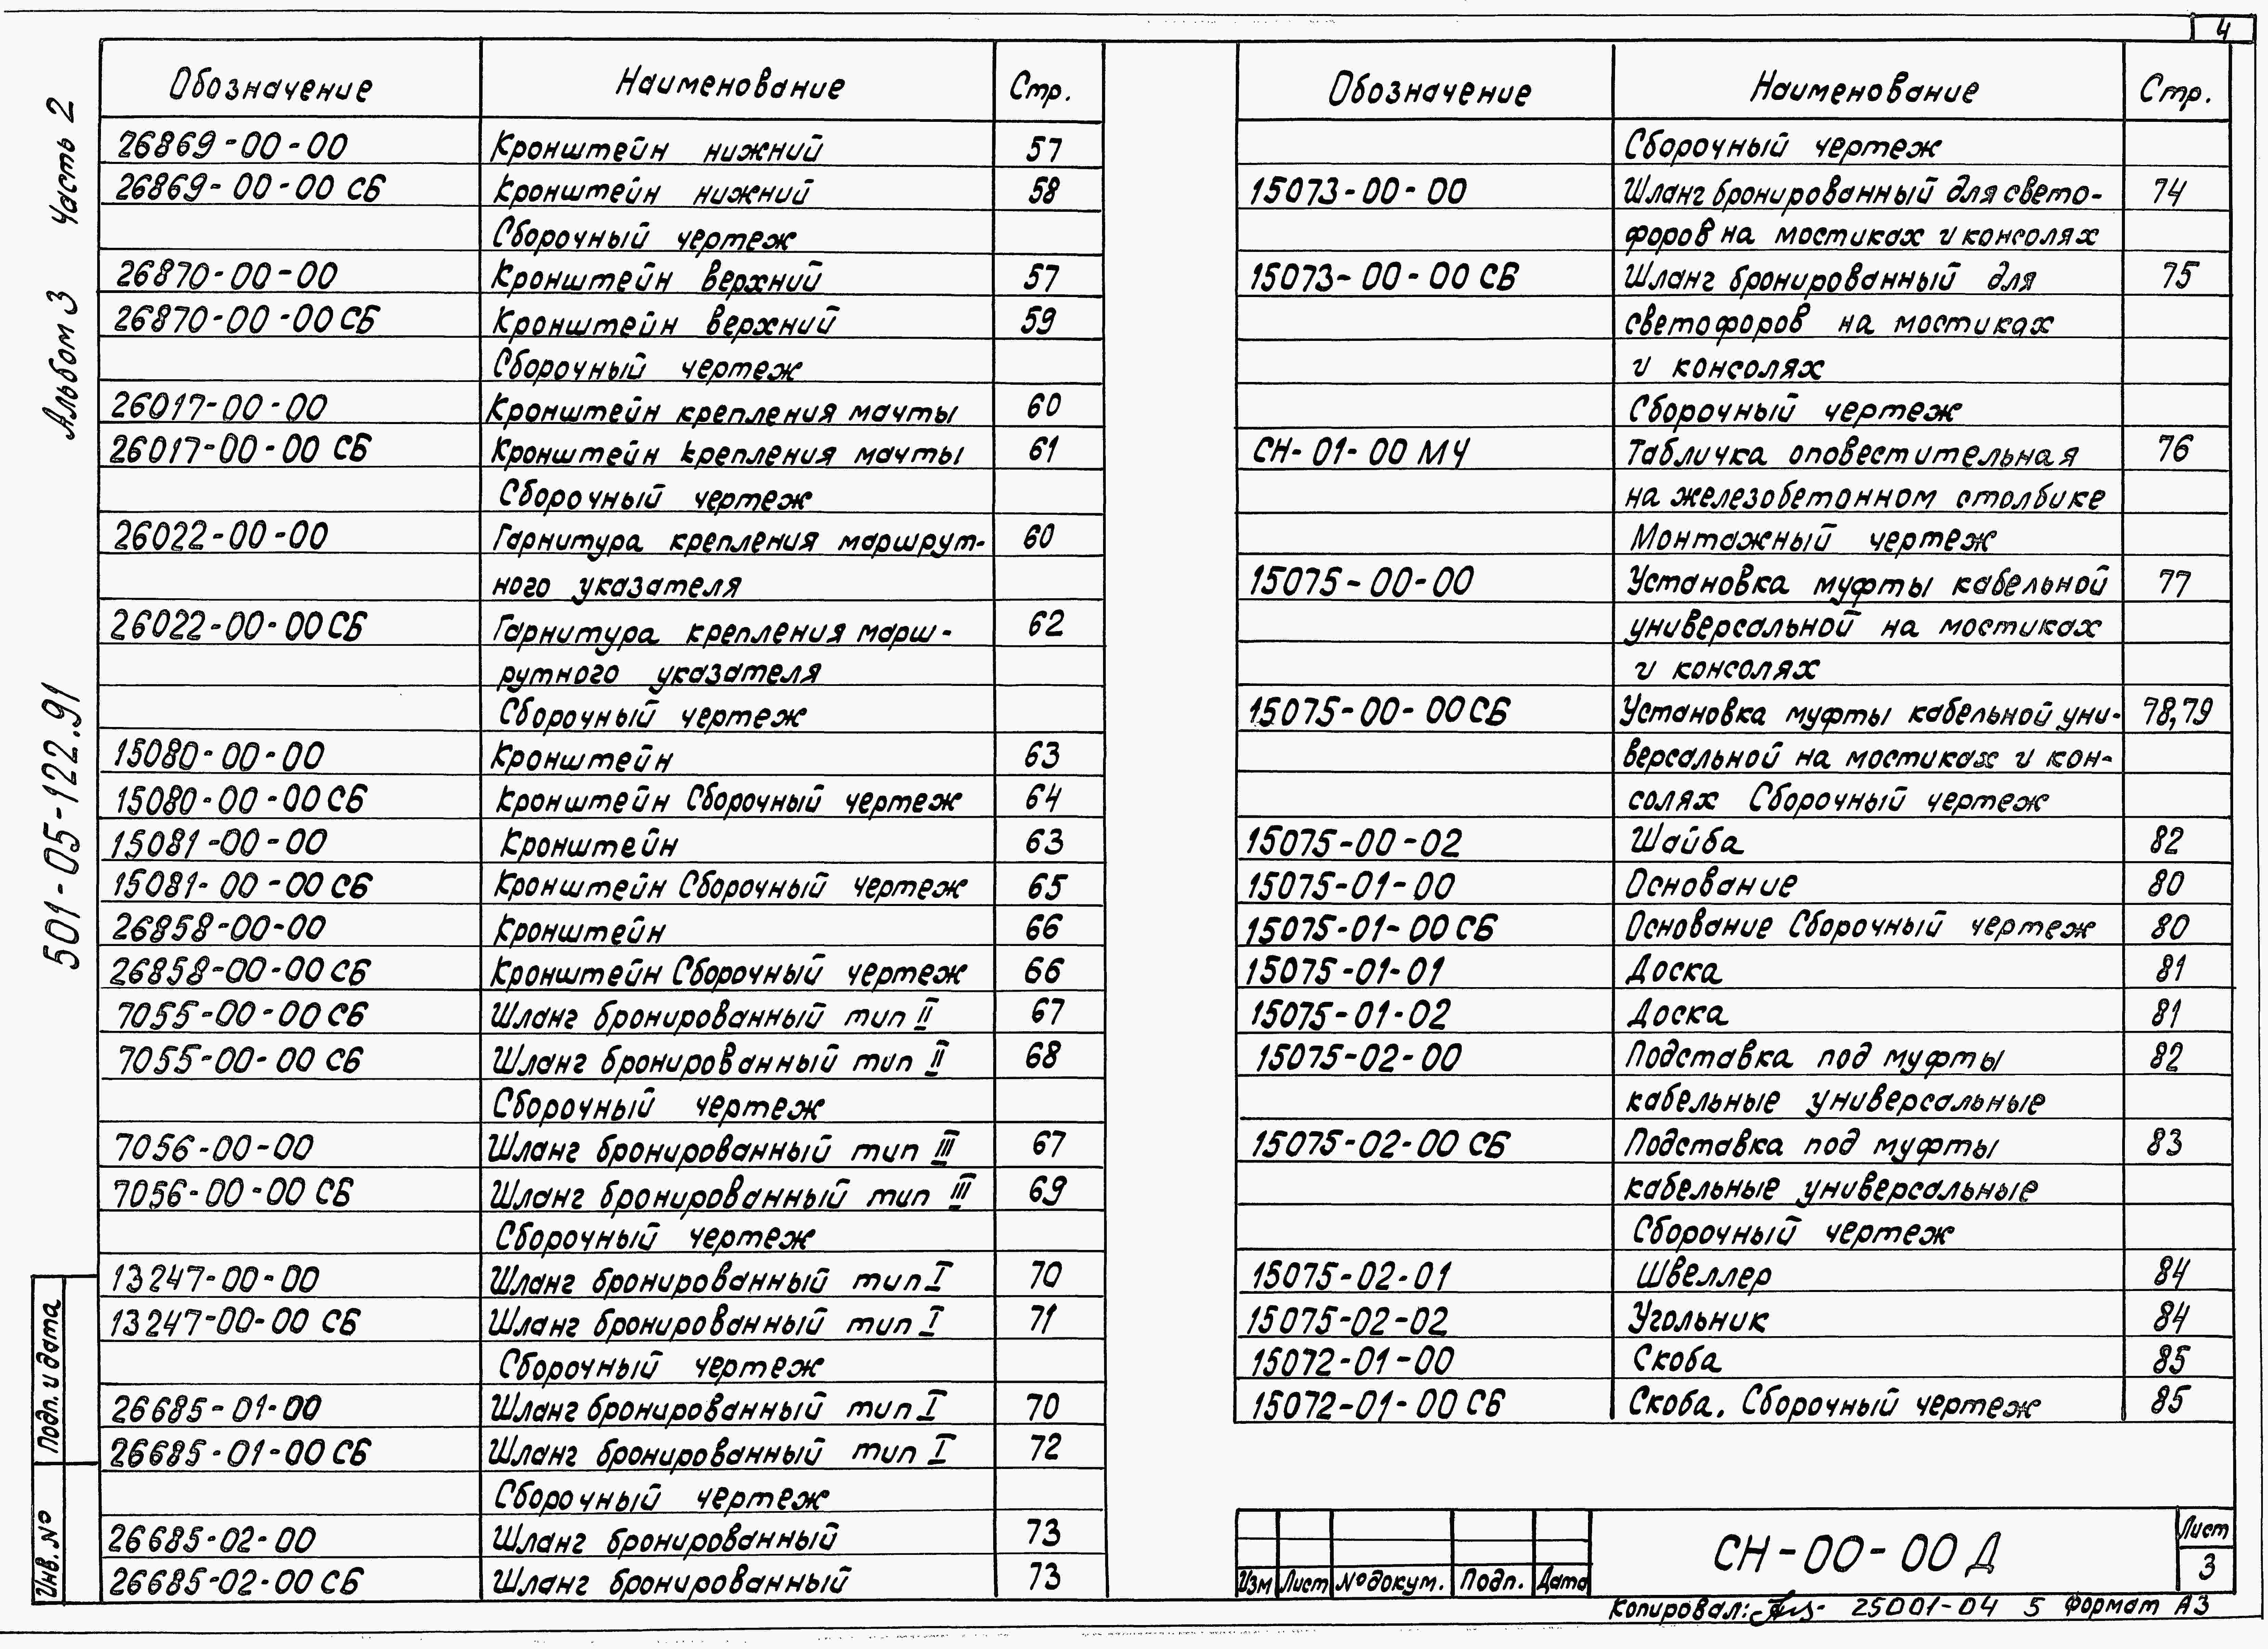 4
Альбом 3 Часть 2
501-05-122.91
Обозначение Наименование Стр.
26869-00-00 Кронштейн нижний 57
26869-00-00 СБ Кронштейн нижний 58
Сборочный чертеж
26870-00-00 Кронштейн верхний 57
26870-00-00 СБ Кронштейн верхний 59
Сборочный чертеж
26017-00-00 Кронштейн крепления мачты 60
26017-00-00 СБ Кронштейн крепления мачты 61
Сборочный чертеж
26022-00-00 Гарнитура крепления маршрут- 60
ного указателя
26022-00-00 СБ Гарнитура крепления марш- 62
рутного указателя
Сборочный чертеж
15080-00-00 Кронштейн 63
15080-00-00 СБ Кронштейн Сборочный чертеж 64
15081-00-00 Кронштейн 63
15081-00-00 СБ Кронштейн Сборочный чертеж 65
26858-00-00 Кронштейн 66
26858-00-00 СБ Кронштейн Сборочный чертеж 66
7055-00-00 СБ Шланг бронированный тип II 67
7055-00-00 СБ Шланг бронированный тип II 68
Сборочный чертеж
7056-00-00 Шланг бронированный тип III 67
7056-00-00 СБ Шланг бронированный тип III 69
Сборочный чертеж
13247-00-00 Шланг бронированный тип I 70
13247-00-00 СБ Шланг бронированный тип I 71
Сборочный чертеж
26685-01-00 Шланг бронированный тип I 70
26685-01-00 СБ Шланг бронированный тип I 72
Сборочный чертеж
26685-02-00 Шланг бронированный 73
26685-02-00 СБ Шланг бронированный 73
Обозначение Наименование Стр.
Сборочный чертеж
15073-00-00 Шланг бронированный для свето- 74
форов на мостиках и консолях
15073-00-00 СБ Шланг бронированный для 75
светофоров на мостиках
и консолях
Сборочный чертеж
СН-01-00 МЧ Табличка оповестительная 76
на железобетонном столбике
Монтажный чертеж
15075-00-00 Установка муфты кабельной 77
универсальной на мостиках
и консолях
15075-00-00 СБ Установка муфты кабельной уни- 78,79
версальной на мостиках и кон-
солях Сборочный чертеж
15075-00-02 Шайба 82
15075-01-00 Основание 80
15075-01-00 СБ Основание Сборочный чертеж 80
15075-01-01 Доска 81
15075-01-02 Доска 81
15075-02-00 Подставка под муфты 82
кабельные универсальные
15075-02-00 СБ Подставка под муфты 83
кабельные универсальные
Сборочный чертеж
15075-02-01 Швеллер 84
15075-02-02 Угольник 84
15072-01-00 Скоба 85
15072-01-00 СБ Скоба. Сборочный чертеж 85
Подп. и дата
Инв. №
Изм Лист № докум. Подп. Дата
СН-00-00 Д
Лист
3
Копировал: 25001-04 5 Формат А3